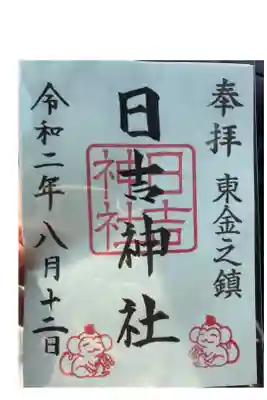 奉拝 東金之鎮
日吉神社
日吉神社
令和二年八月十二日